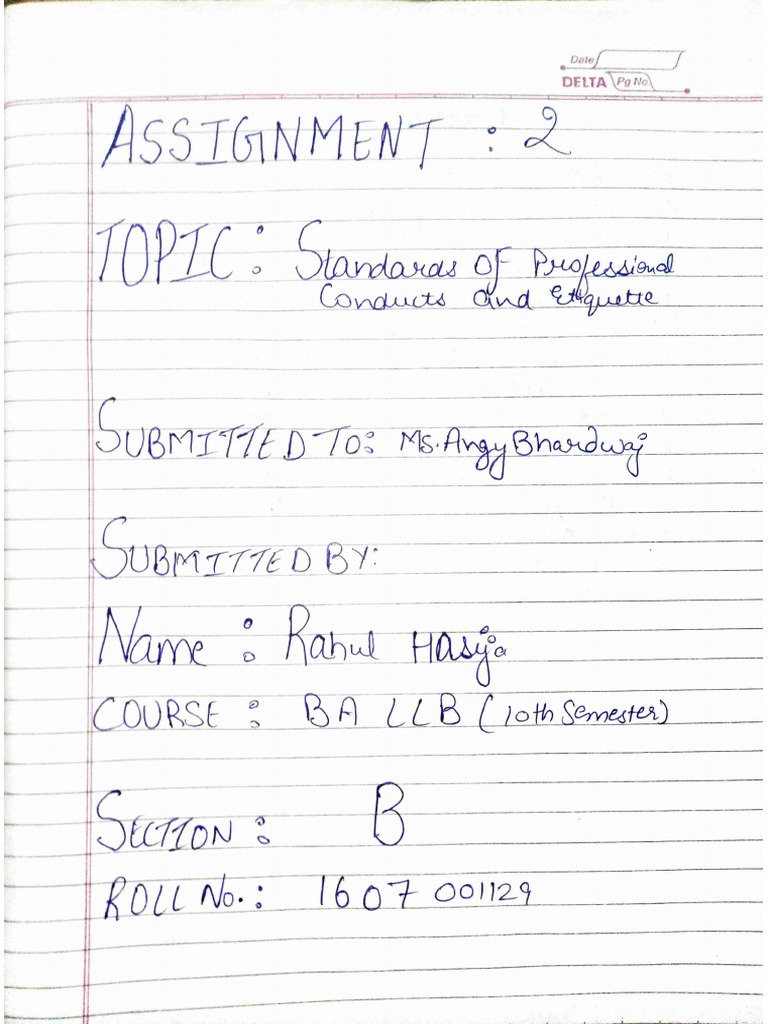 Date
DELTA Pg No
ASSIGNMENT : 2
TOPIC: Standards Of Professional
Conducts and Etiquette
SUBMITTED TO: Ms. Angy Bhardwaj
SUBMITTED BY:
Name : Rahul Hasija
COURSE : BA LLB (10th Semester)
SECTION : B
ROLL No. : 1607001129